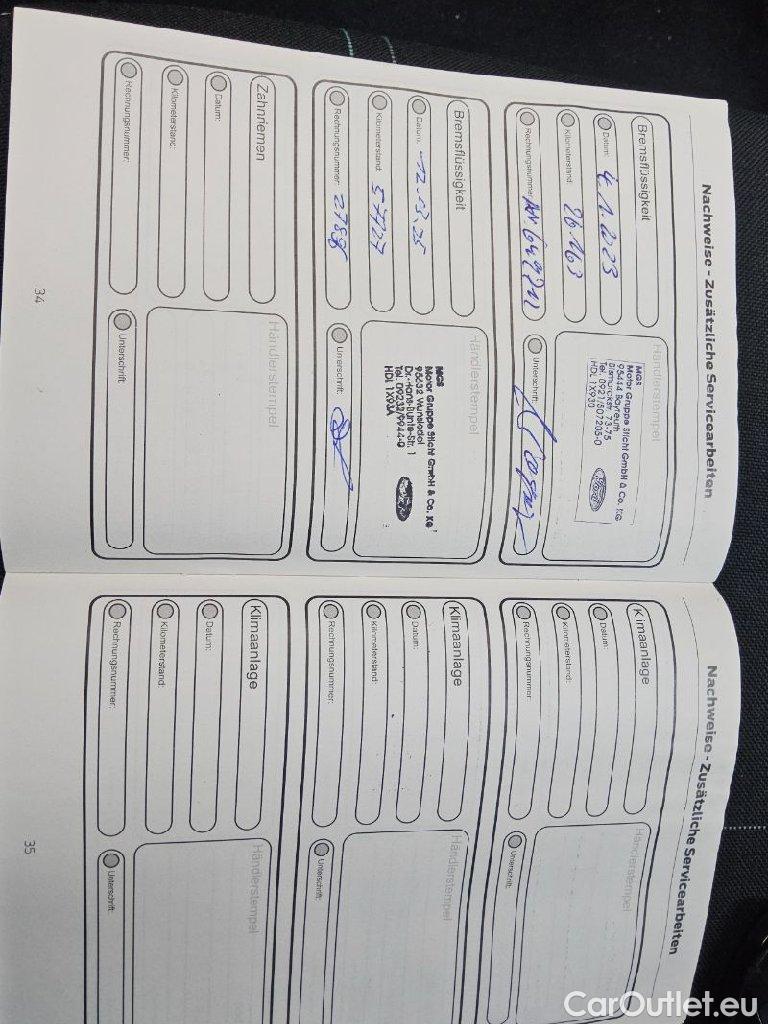 Nachweise - Zusätzliche Servicearbeiten
Bremsflüssigkeit
Datum: 4.1.2023
Kilometerstand: 26.163
Rechnungsnummer:
Händlerstempel
MGS
Motor Gruppe Sticht GmbH & Co. KG
95444 Bayreuth
Bismarckstr. 73-75
Tel. 0921/507205-0
HDL 1X930
Ford
Unterschrift:
Bremsflüssigkeit
Datum:
Kilometerstand: 57727
Rechnungsnummer:
Händlerstempel
MGS
Motor Gruppe Sticht GmbH & Co. KG
95632 Wunsiedel
Dr.-Hans-Bunte-Str. 1
Tel. 09232/9944-0
HDL 1X93A
Unterschrift:
Zahnriemen
Datum:
Kilometerstand:
Rechnungsnummer:
Händlerstempel
Unterschrift:
34
Nachweise - Zusätzliche Servicearbeiten
Klimaanlage
Datum:
Kilometerstand:
Rechnungsnummer:
Händlerstempel
Unterschrift:
Klimaanlage
Datum:
Kilometerstand:
Rechnungsnummer:
Händlerstempel
Unterschrift:
Klimaanlage
Datum:
Kilometerstand:
Rechnungsnummer:
Händlerstempel
Unterschrift:
35
CarOutlet.eu